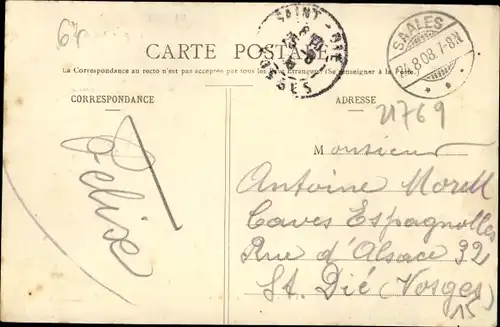 67
CARTE POSTALE
La Correspondance au recto n'est pas acceptée par tous les Pays Etrangers (Se renseigner à la Poste.)
CORRESPONDANCE
ADRESSE
SAINT-DIÉ
VOSGES
SAALES
24.8.08.7-8N.
21769
Félise
Monsieur
Antoine Morell
Caves Espagnolles
Rue d'Alsace 32
St. Dié (Vosges)
15